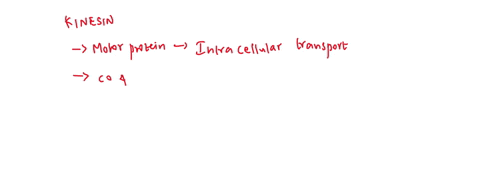 KINESIN
-> Motor protein -> Intracellular transport
-> co